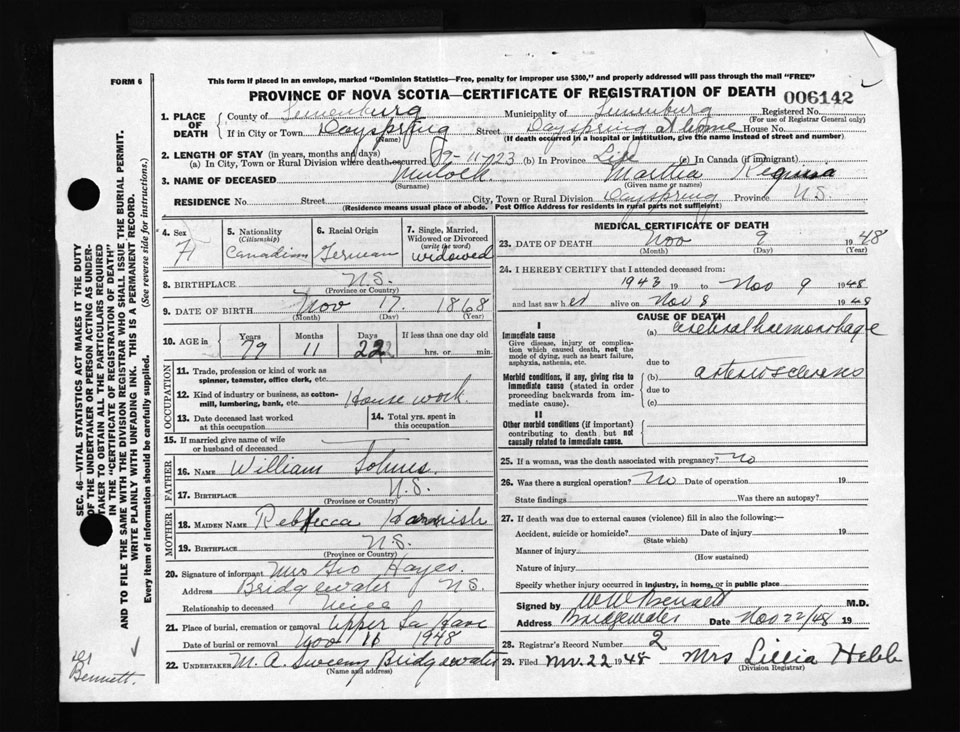 FORM 6
This form if placed in an envelope, marked "Dominion Statistics—Free, penalty for improper use $300," and properly addressed will pass through the mail "FREE"
PROVINCE OF NOVA SCOTIA—CERTIFICATE OF REGISTRATION OF DEATH 006142
1. PLACE OF DEATH
County of Lunenburg Municipality of Lunenburg Registered No.
(For use of Registrar General only)
If in City or Town Dayspring Street Dayspring at home House No.
(Name) (If death occurred in a hospital or institution, give the name instead of street and number)
2. LENGTH OF STAY (in years, months and days)
(a) In City, Town or Rural Division where death occurred 79-11-23 (b) In Province Life (c) In Canada (if immigrant)
3. NAME OF DECEASED Mulock Martha Regina
(Surname) (Given name or names)
RESIDENCE No. Street City, Town or Rural Division Dayspring Province N.S.
(Residence means usual place of abode. Post Office Address for residents in rural parts not sufficient)
4. Sex F
5. Nationality (Citizenship) Canadian
6. Racial Origin German
7. Single, Married, Widowed or Divorced (write the word) widowed
8. BIRTHPLACE N.S.
(Province or Country)
9. DATE OF BIRTH Nov 17 1868
(Month) (Day) (Year)
10. AGE in Years Months Days If less than one day old
79 11 22 hrs. or min
OCCUPATION
11. Trade, profession or kind of work as spinner, teamster, office clerk, etc.
12. Kind of industry or business, as cotton-mill, lumbering, bank, etc. House work.
13. Date deceased last worked at this occupation
14. Total yrs. spent in this occupation
15. If married give name of wife or husband of deceased
FATHER
16. NAME William
17. BIRTHPLACE N.S.
(Province or Country)
MOTHER
18. MAIDEN NAME Rebecca Harnish
19. BIRTHPLACE N.S.
(Province or Country)
20. Signature of informant Mrs Geo Hayes.
Address Bridgewater N.S.
Relationship to deceased niece
21. Place of burial, cremation or removal Upper La Have
Date of burial or removal Nov 11 1948
22. UNDERTAKER M. A. Sweeny Bridgewater
(Name and address)
MEDICAL CERTIFICATE OF DEATH
23. DATE OF DEATH Nov 9 1948
(Month) (Day) (Year)
24. I HEREBY CERTIFY that I attended deceased from:
1943 19 to Nov 9 1948
and last saw her alive on Nov 8 1948
CAUSE OF DEATH
I
Immediate cause (a) cerebral haemorrhage
Give disease, injury or complication which caused death, not the mode of dying, such as heart failure, asphyxia, asthenia, etc.
due to
Morbid conditions, if any, giving rise to immediate cause (stated in order proceeding backwards from immediate cause). (b) arteriosclerosis
due to
(c)
II
Other morbid conditions (if important) contributing to death but not causally related to immediate cause.
25. If a woman, was the death associated with pregnancy? No
26. Was there a surgical operation? No Date of operation 19
State findings Was there an autopsy?
27. If death was due to external causes (violence) fill in also the following:—
Accident, suicide or homicide? Date of injury 19
(State which)
Manner of injury
(How sustained)
Nature of injury
Specify whether injury occurred in industry, in home, or in public place
Signed by W W Bennett M.D.
Address Bridgewater Date Nov 22/48 19
28. Registrar's Record Number 2
29. Filed Nov. 22 1948 Mrs Lillia Hebb
(Division Registrar)
SEC. 46—VITAL STATISTICS ACT MAKES IT THE DUTY
OF THE UNDERTAKER OR PERSON ACTING AS UNDER-
TAKER TO OBTAIN ALL THE PARTICULARS REQUIRED
IN THE "CERTIFICATE OF REGISTRATION OF DEATH"
AND TO FILE THE SAME WITH THE DIVISION REGISTRAR WHO SHALL ISSUE THE BURIAL PERMIT.
WRITE PLAINLY WITH UNFADING INK. THIS IS A PERMANENT RECORD.
Every item of information should be carefully supplied. (See reverse side for instructions.)
Bennett.